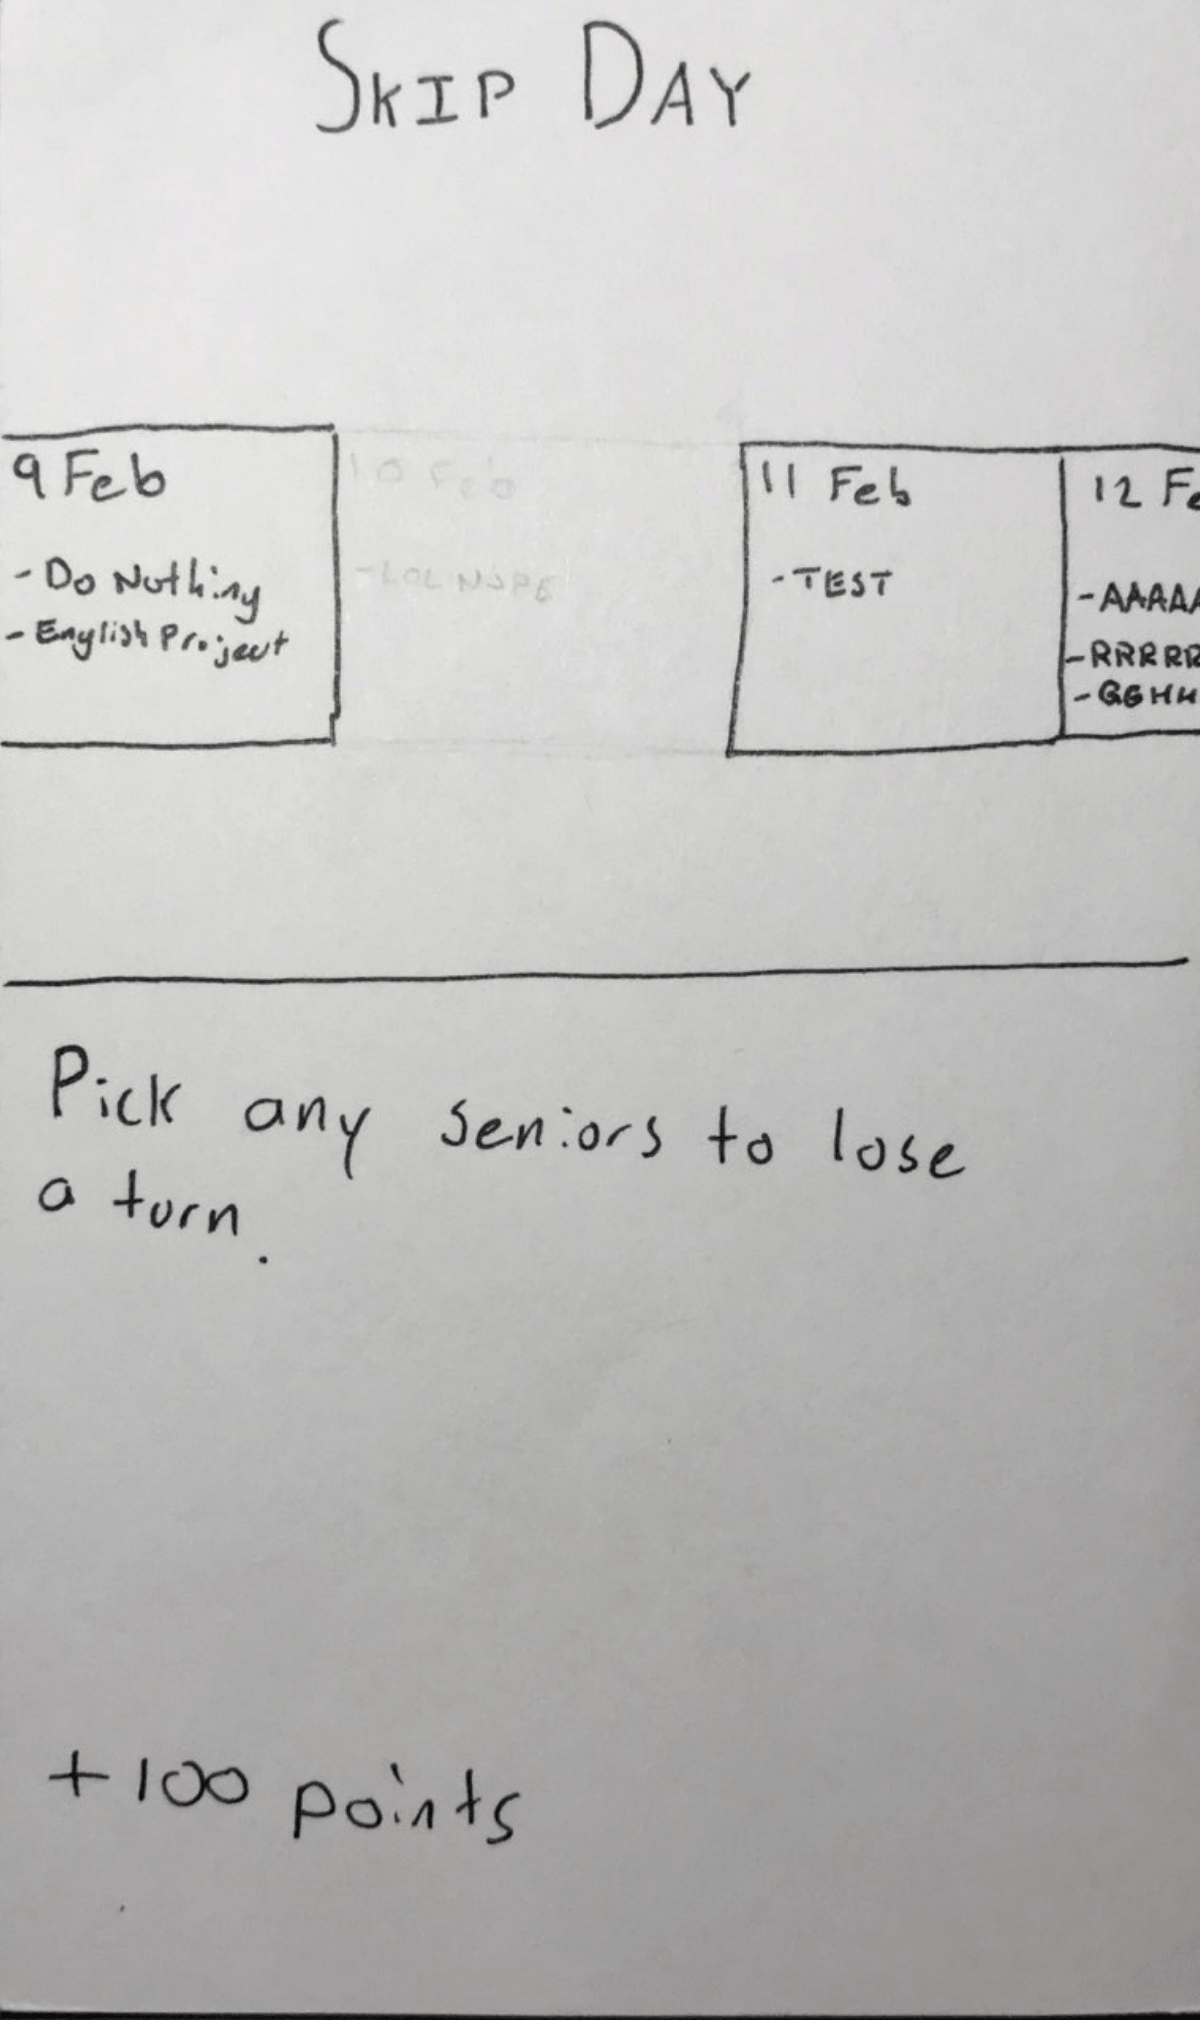 SKIP DAY
9 Feb
- Do Nothing
- English Project
10 Feb
- LOL NOPE
11 Feb
- TEST
12 Fe
- AAAAA
- RRRRR
- GGHH
Pick any seniors to lose
a turn.
+100 points